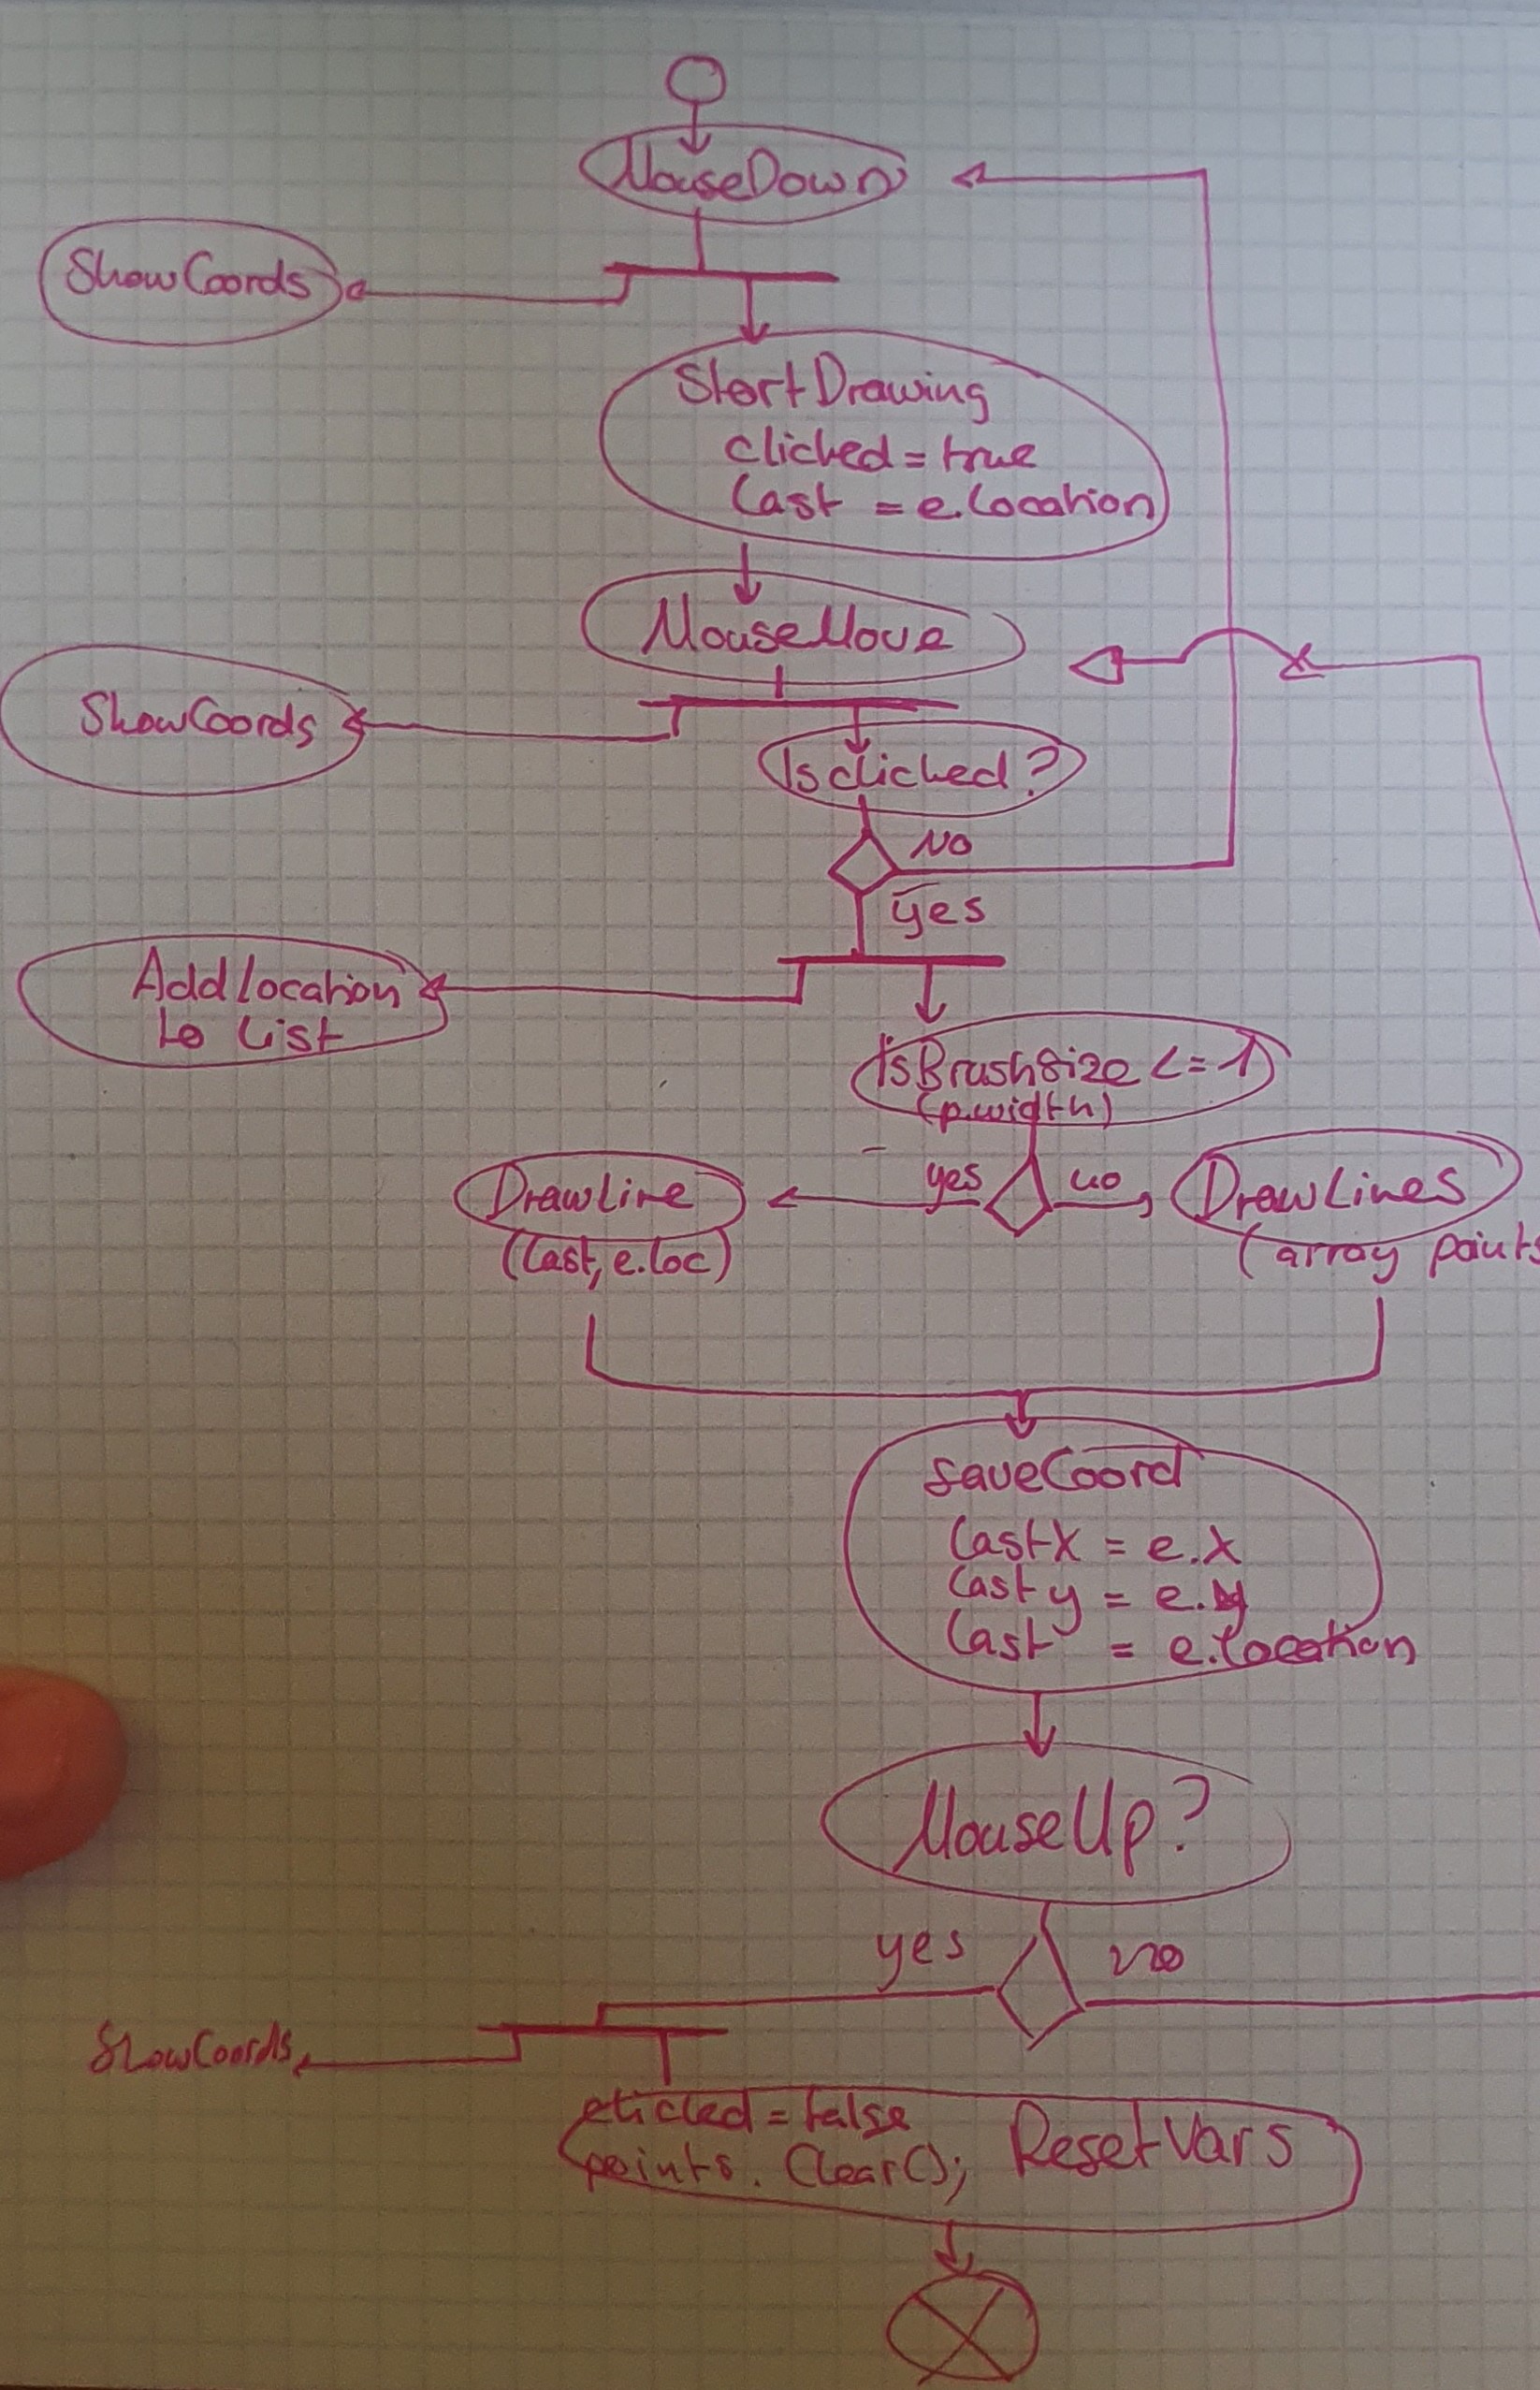 MouseDown
ShowCoords
StartDrawing
clicked = true
Last = e.Location
MouseMove
ShowCoords
Isclicked?
No
yes
Add Location
to List
IsBrushSize <= 1
(p.width)
yes
no
DrawLine
DrawLines
(Last, e.loc)
(array points
saveCoord
Lastx = e.x
Lasty = e.y
Last = e.location
MouseUp?
yes
no
ShowCoords
clicked = false
points. Clear();
ResetVars